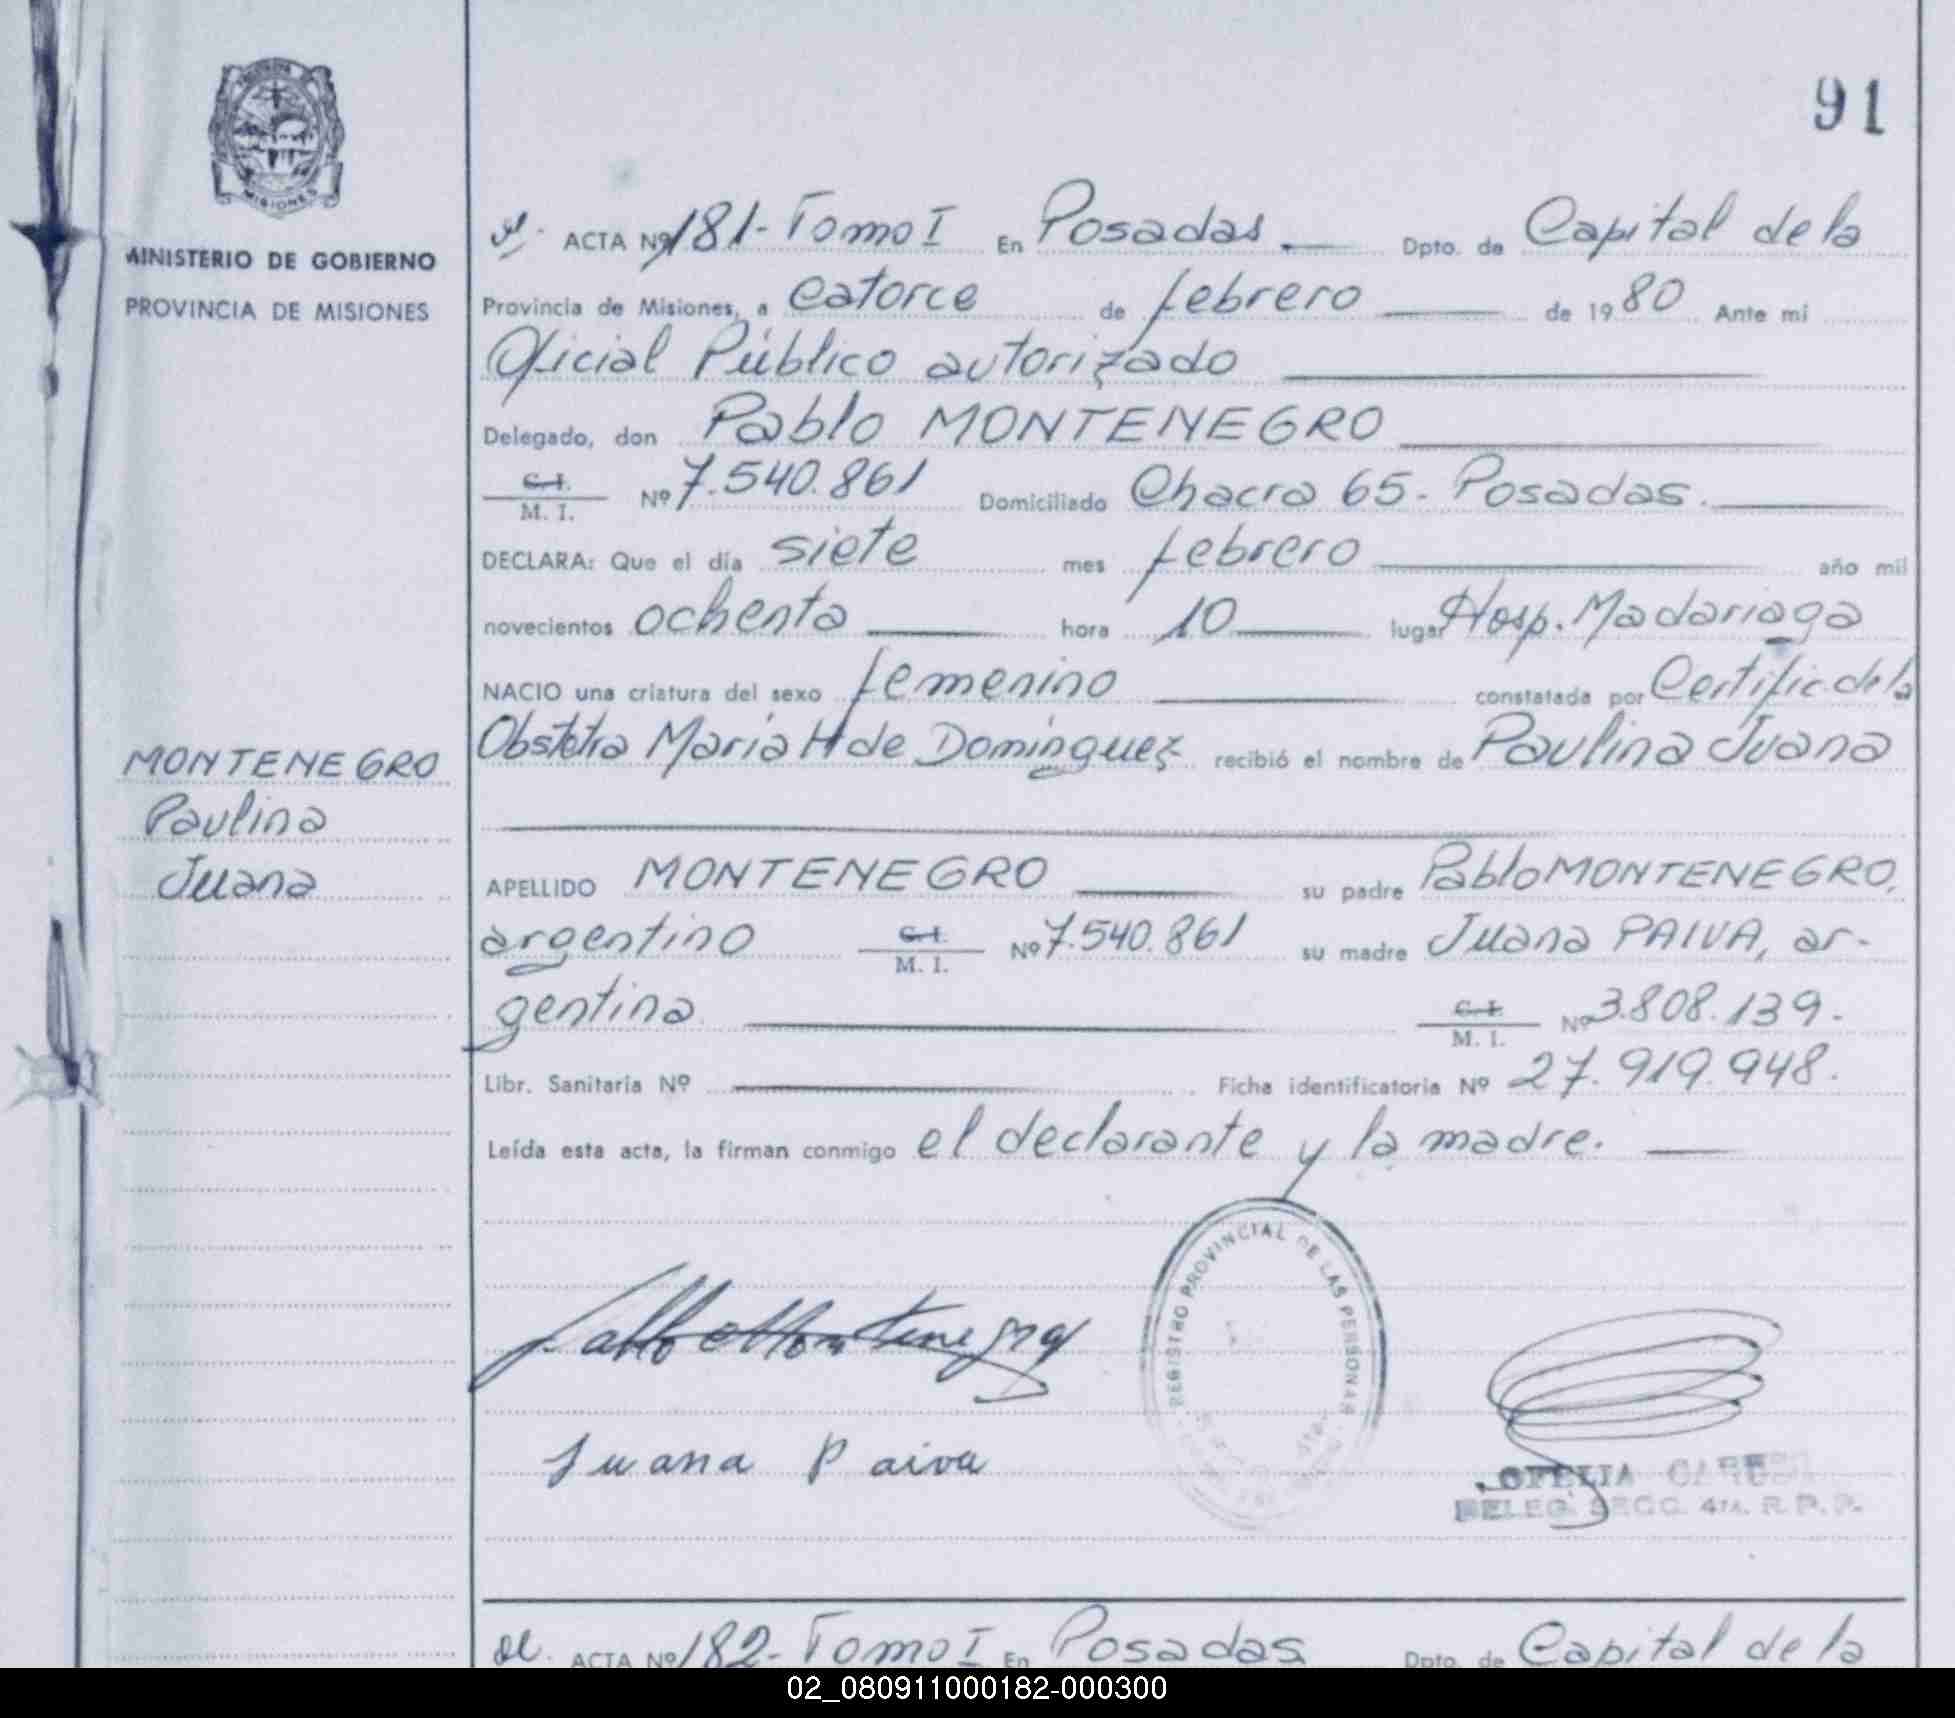 91
PROVINCIA
MISIONES
MINISTERIO DE GOBIERNO
PROVINCIA DE MISIONES
ACTA Nº 181- Tomo I En Posadas Dpto. de Capital de la
Provincia de Misiones, a catorce de febrero de 1980 Ante mi
Oficial Público autorizado
Delegado, don Pablo MONTENEGRO
C.I.
M. I. Nº 7.540.861 Domiciliado Chacra 65. Posadas.
DECLARA: Que el día siete mes febrero año mil
novecientos ochenta hora 10 lugar Hosp. Madariaga
NACIO una criatura del sexo femenino constatada por Certific. de la
Obstetra María H de Domínguez recibió el nombre de Paulina Juana
MONTENEGRO
Paulina
Juana
APELLIDO MONTENEGRO su padre Pablo MONTENEGRO,
argentino C.I. M. I. Nº 7.540.861 su madre Juana PAIVA, ar-
gentina C.I. M. I. Nº 3.808.139.
Libr. Sanitaria Nº Ficha identificatoria Nº 27.919.948.
Leída esta acta, la firman conmigo el declarante y la madre.
REGISTRO PROVINCIAL DE LAS PERSONAS
Pablo Montenegro
Juana Paiva
OFELIA
DELEG. SECC. 4ta. R. P. P.
ACTA Nº 182- Tomo I En Posadas Dpto. de Capital de la
02_080911000182-000300